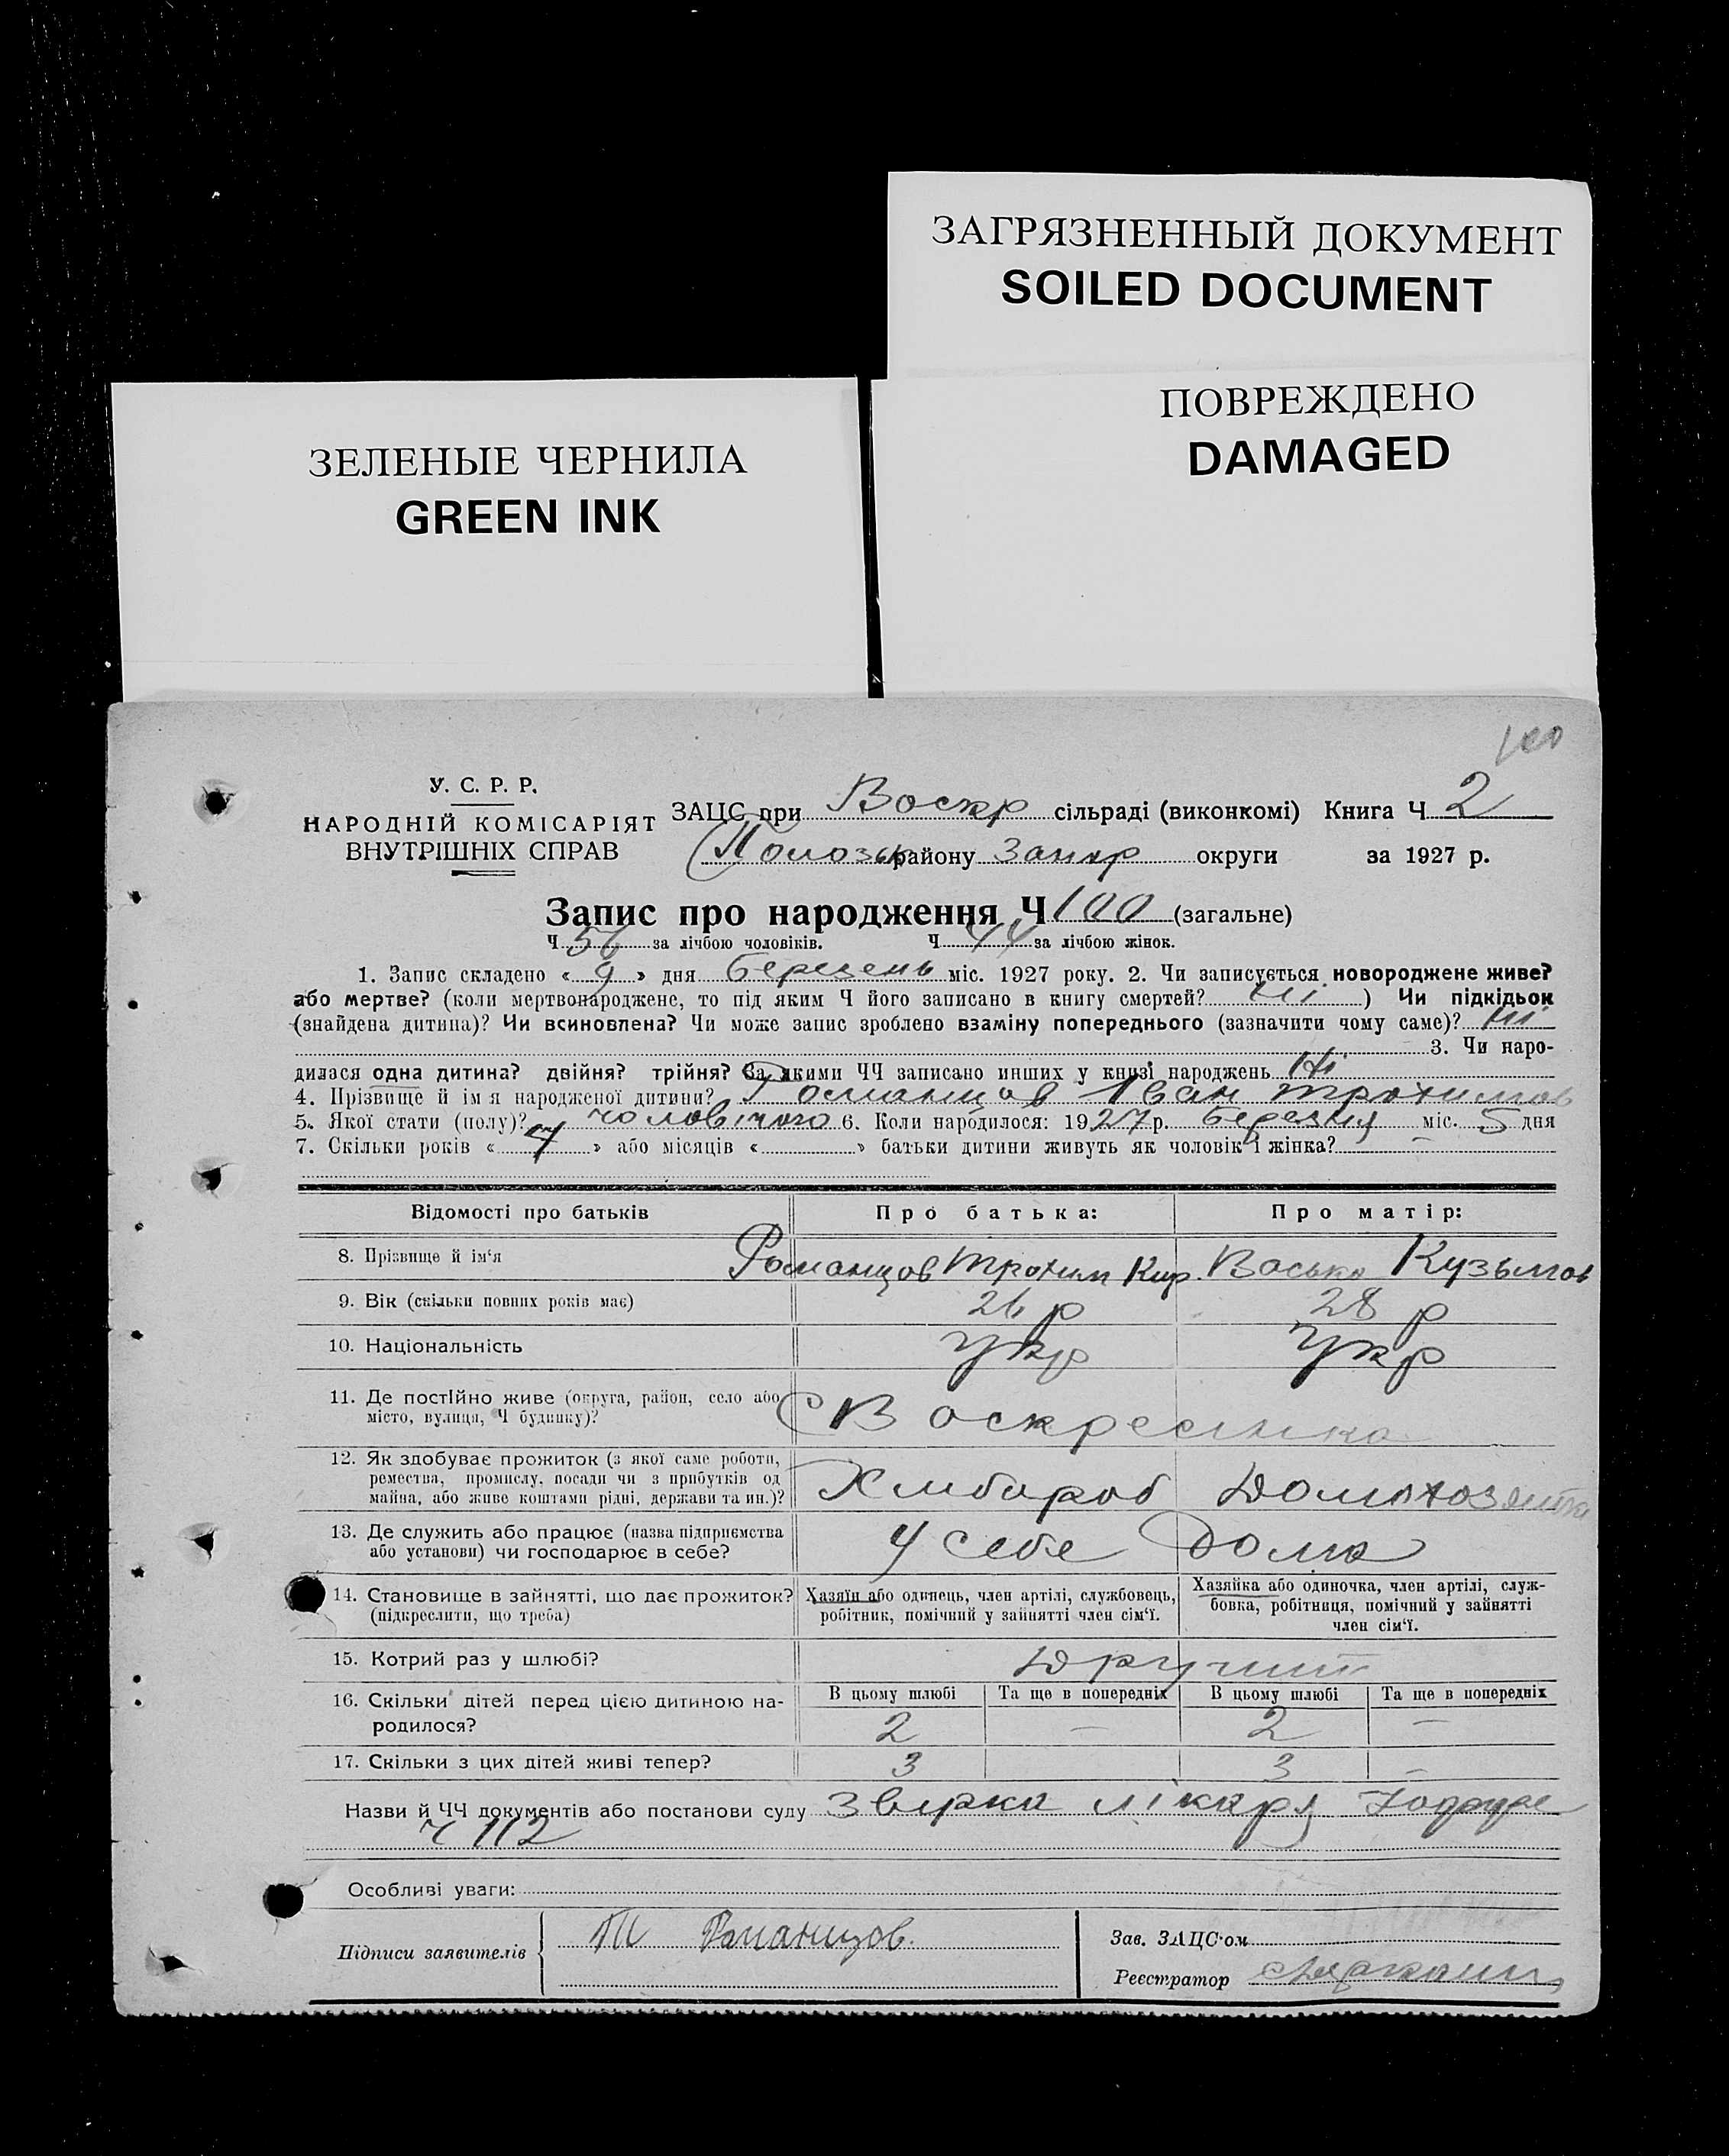 ЗАГРЯЗНЕННЫЙ ДОКУМЕНТ
SOILED DOCUMENT
ПОВРЕЖДЕНО
DAMAGED
ЗЕЛЕНЫЕ ЧЕРНИЛА
GREEN INK
100
У. С. Р. Р.
НАРОДНІЙ КОМІСАРІЯТ
ВНУТРІШНІХ СПРАВ
ЗАЦС при Воскр сільраді (виконкомі) Книга Ч 2
району Запор округи за 1927 р.
Запис про народження Ч 100 (загальне)
Ч 56 за лічбою чоловіків. Ч 44 за лічбою жінок.
1. Запис складено « 9 » дня березень міс. 1927 року. 2. Чи записується новороджене живе?
або мертве? (коли мертвонароджене, то під яким Ч його записано в книгу смертей? ні ) Чи підкідьок
(знайдена дитина)? Чи всиновлена? Чи може запис зроблено взаміну попереднього (зазначити чому саме)? ні
3. Чи наро-
дилася одна дитина? двійня? трійня? За якими ЧЧ записано инших у книзі народжень Ні
4. Прізвище й ім'я народженої дитини? Романцов Іван Трохимов
5. Якої стати (полу)? чоловічого 6. Коли народилося: 1927 р. березня міс. 5 дня
7. Скільки років « 4 » або місяців « » батьки дитини живуть як чоловік і жінка? —
Відомості про батьків Про батька: Про матір:
8. Прізвище й ім'я Романцов Трохим Кир. Васько Кузьмов
9. Вік (скільки повних років має) 26 р 28 р
10. Національність Укр Укр
11. Де постійно живе (округа, район, село або
місто, вулиця, Ч будинку)? С Воскресенка
12. Як здобуває прожиток (з якої саме роботи,
ремества, промислу, посади чи з прибутків од
майна, або живе коштами рідні, держави та ин.)? Хлібороб Домохозяйка
13. Де служить або працює (назва підприємства
або установи) чи господарює в себе? У себе дома
14. Становище в зайнятті, що дає прожиток?
(підкреслити, що треба)
Хазяїн або одинець, член артілі, службовець,
робітник, помічний у зайнятті член сім'ї.
Хазяйка або одиночка, член артілі, служ-
бовка, робітниця, помічний у зайнятті
член сім'ї.
15. Котрий раз у шлюбі?
16. Скільки дітей перед цією дитиною на-
родилося?
В цьому шлюбі Та ще в попередніх В цьому шлюбі Та ще в попередніх
2 — 2 —
17. Скільки з цих дітей живі тепер? 3 3 —
Назви й ЧЧ документів або постанови суду лікаря
ч 112
Особливі уваги:
Підписи заявителів Романцов.
Зав. ЗАЦС'ом
Реєстратор